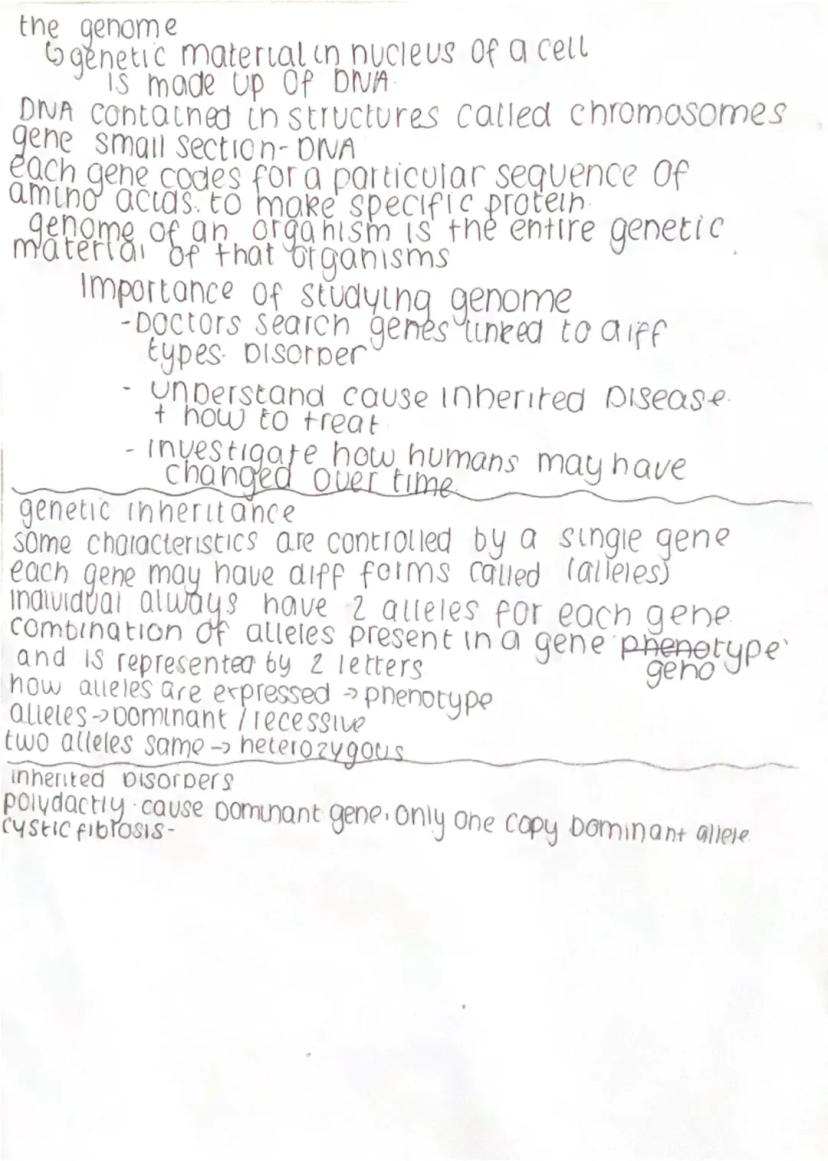 the genome
↳ genetic material in nucleus of a cell
is made up of DNA.
DNA contained in structures called chromosomes
gene small section - DNA
each gene codes for a particular sequence of
amino acids. to make specific protein.
genome of an organism is the entire genetic
material of that organisms
Importance of studying genome
- Doctors search genes linked to diff
types. Disorder
- understand cause inherited Disease.
+ how to treat.
- investigate how humans may have
changed over time.
genetic inheritance
some characteristics are controlled by a single gene
each gene may have diff forms called (alleles)
individual always have 2 alleles for each gene.
combination of alleles present in a gene phenotype
geno
and is represented by 2 letters
how alleles are expressed → phenotype
alleles → Dominant / recessive
two alleles same → heterozygous
inherited Disorders
polydactly. cause Dominant gene. Only one copy Dominant allele.
cystic fibrosis -